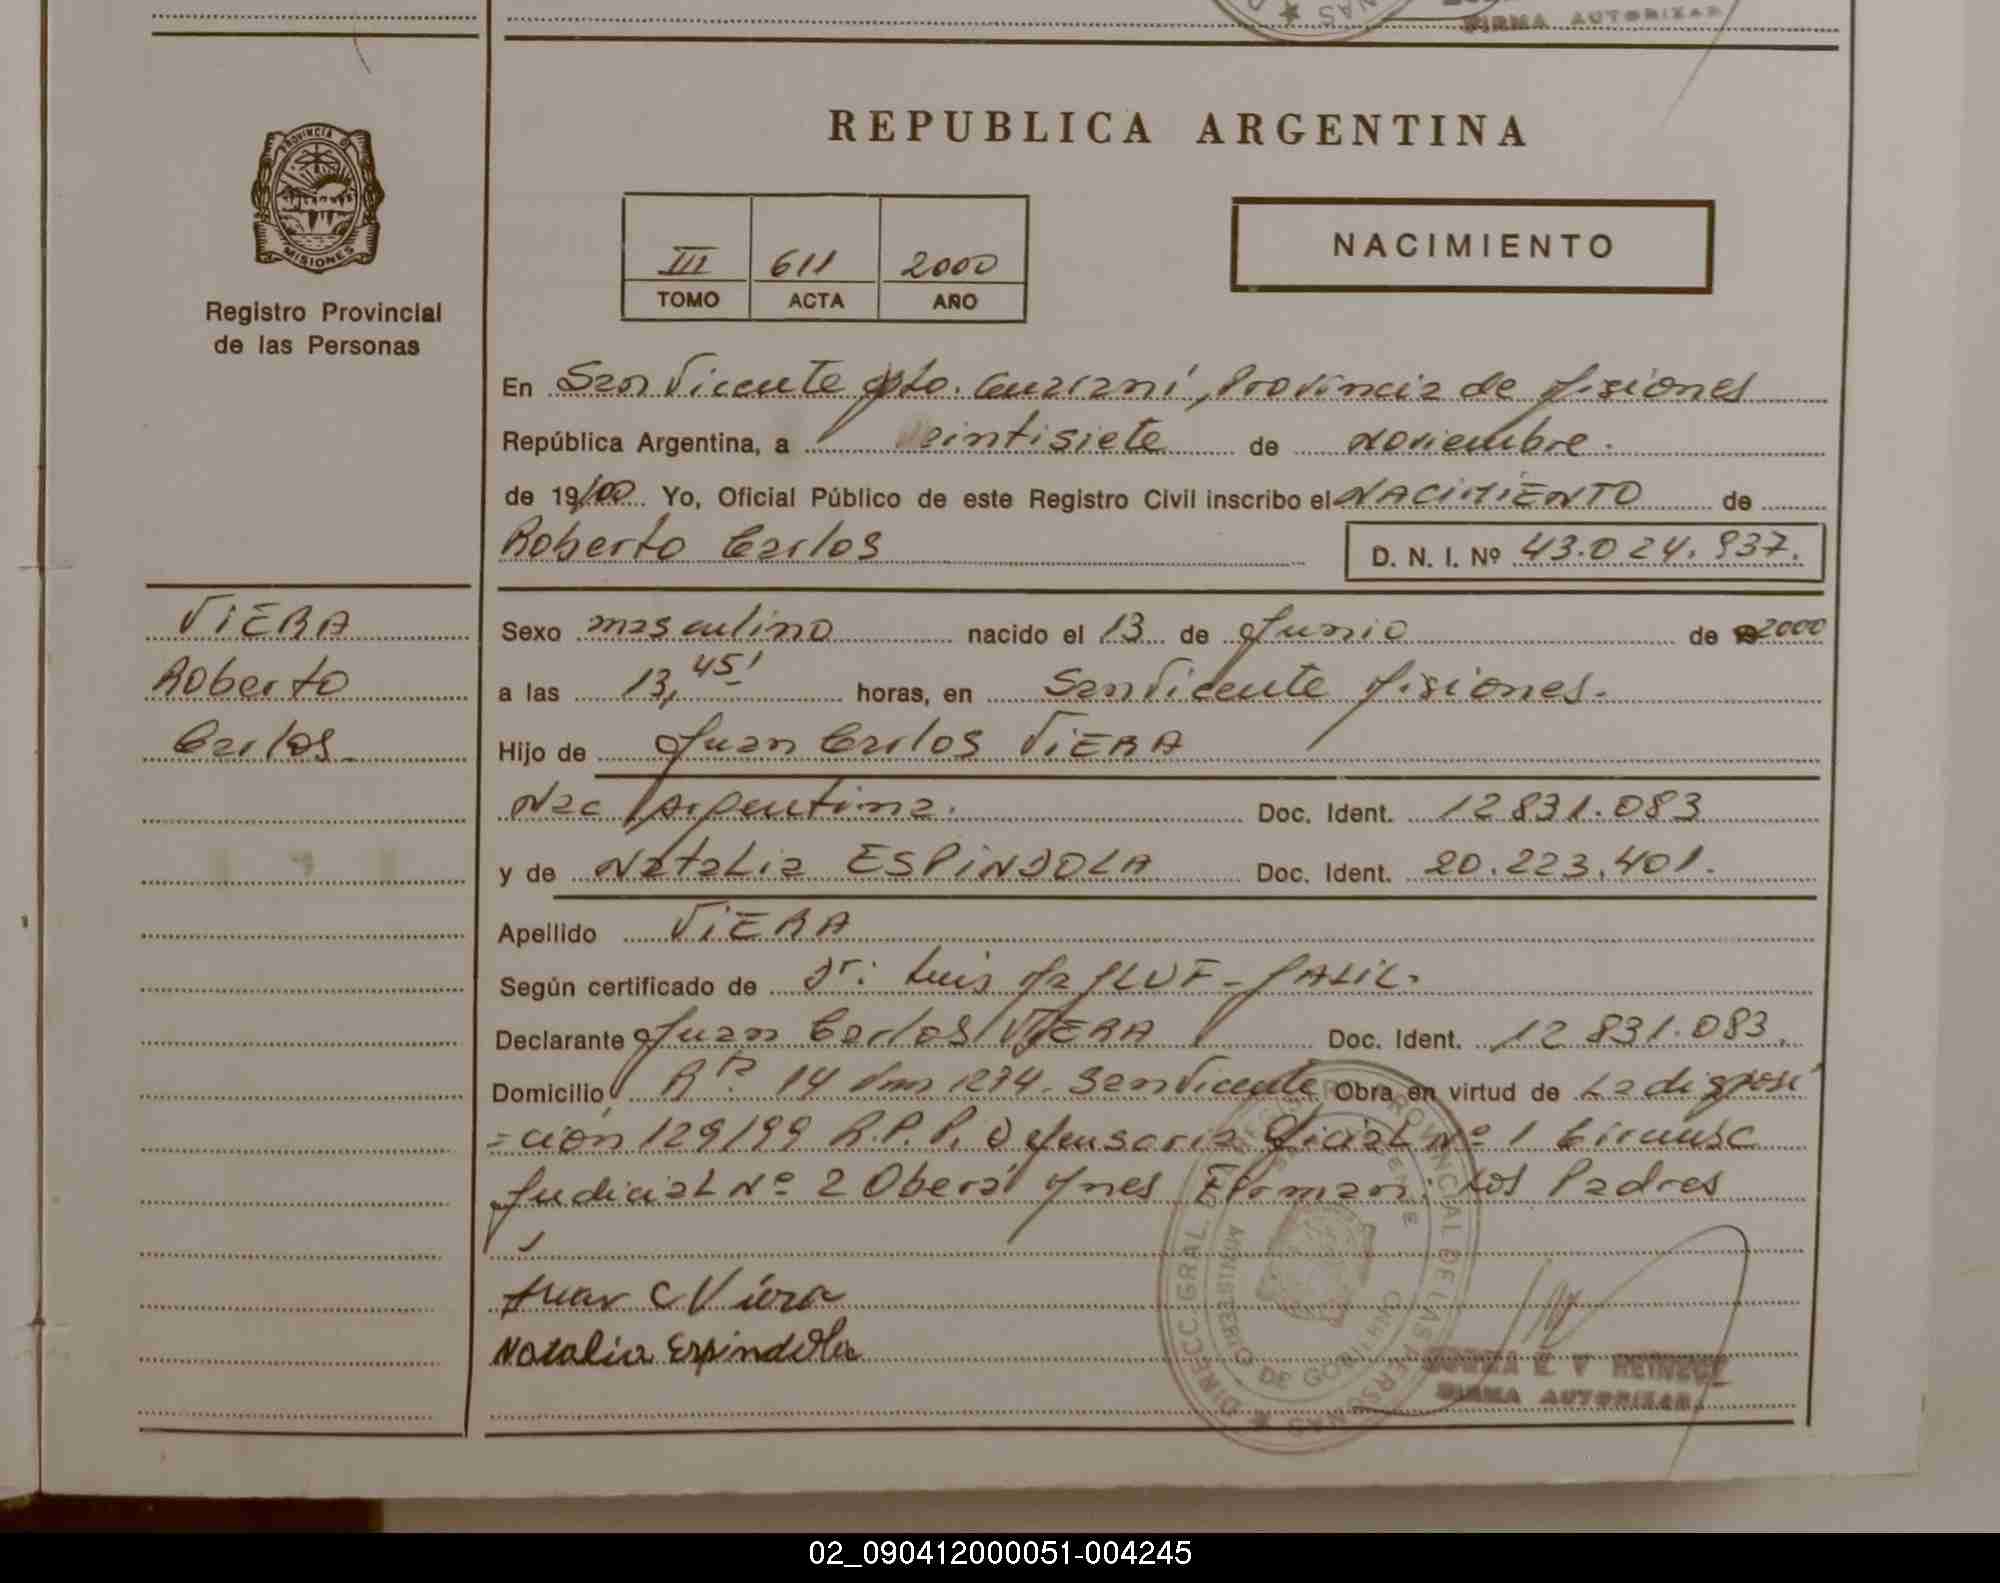 FIRMA AUTORIZAD
REPUBLICA ARGENTINA
PROVINCIA D
MISIONES
Registro Provincial
de las Personas
III 611 2000
TOMO ACTA AÑO
NACIMIENTO
En San Vicente Dpto. Guaraní, Provincia de Misiones
República Argentina, a veintisiete de noviembre.
de 19/00 Yo, Oficial Público de este Registro Civil inscribo el NACIMIENTO de
Roberto Carlos D. N. I. Nº 43.024.937.
VIERA
Roberto
Carlos
Sexo masculino nacido el 13 de Junio de 2000
a las 13,45' horas, en San Vicente Misiones.
Hijo de Juan Carlos VIERA
Nac Argentina. Doc. Ident. 12831.083
y de Natalia ESPINDOLA Doc. Ident. 20.223.401.
Apellido VIERA
Según certificado de Dr: Luis
Declarante Juan Carlos VIERA Doc. Ident. 12831.083.
Domicilio R 14 1274. San Vicente Obra en virtud de La disposi
=ción 129/99 R.P.P. Defensoria Oficial Nº 1 Circunsc
Judicial Nº 2 Oberá Ynes Firman: Los Padres
Juan C Viera
Natalia Espindola
DIRECC. GRAL. REGISTRO PROVINCIAL DE LAS PERSONAS
MINISTERIO DE GOBIERNO
SAN VICENTE
FIRMA AUTORIZAD.
02_090412000051-004245